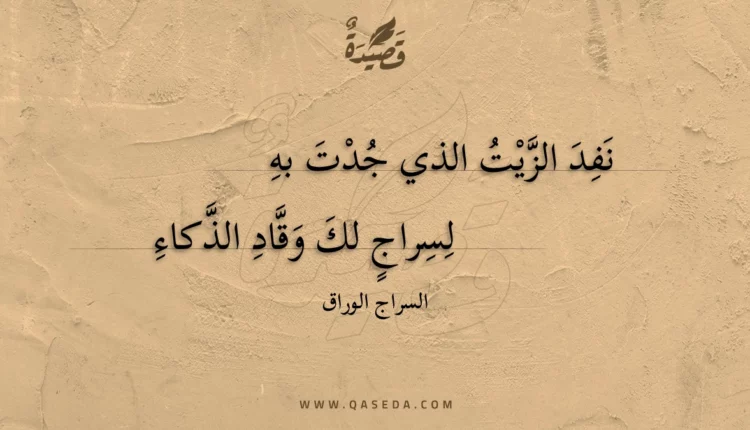 قَصِيدَةٌ
نَفِدَ الزَّيْتُ الذي جُدْتَ بهِ
لِسِراجٍ لكَ وَقَّادِ الذَّكاءِ
السراج الوراق
WWW.QASEDA.COM